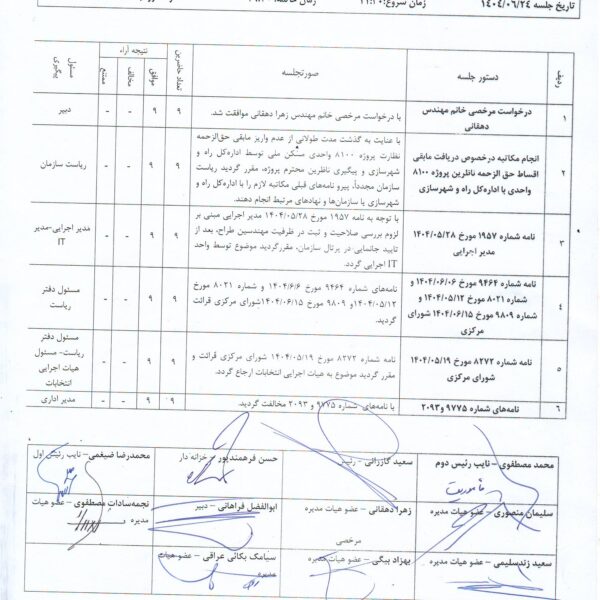 تاریخ جلسه ۱۴۰۴/۰۶/۲۴
زمان شروع: ۱۱:۳۰
ردیف
دستور جلسه
صورتجلسه
تعداد حاضرین
نتیجه آراء
موافق
مخالف
ممتنع
مسئول پیگیری
۱
درخواست مرخصی خانم مهندس
دهقانی
با درخواست مرخصی خانم مهندس زهرا دهقانی موافقت شد.
۹
۹
-
-
دبیر
۲
انجام مکاتبه درخصوص دریافت مابقی
اقساط حق الزحمه ناظرین پروژه ۸۱۰۰
واحدی با اداره‌کل راه و شهرسازی
با عنایت به گذشت مدت طولانی از عدم واریز مابقی حق‌الزحمه
نظارت پروژه ۸۱۰۰ واحدی مسکن ملی توسط اداره‌کل راه و
شهرسازی و پیگیری ناظرین محترم پروژه، مقرر گردید ریاست
سازمان مجدداً، پیرو نامه‌های قبلی مکاتبه لازم را با اداره‌کل راه و
شهرسازی یا سازمان‌ها و نهادهای مرتبط انجام دهند.
۹
۹
-
-
ریاست سازمان
۳
نامه شماره ۱۹۵۷ مورخ ۱۴۰۴/۰۵/۲۸
مدیر اجرایی
با توجه به نامه ۱۹۵۷ مورخ ۱۴۰۴/۰۵/۲۸ مدیر اجرایی مبنی بر
لزوم بررسی صلاحیت و ثبت در ظرفیت مهندسین طراح، بعد از
تایید جانمایی در پرتال سازمان، مقررگردید موضوع توسط واحد
IT اجرایی گردد.
۹
۹
-
-
مدیر اجرایی-مدیر
IT
۴
نامه شماره ۹۴۶۴ مورخ ۱۴۰۴/۰۶/۰۶ و
شماره ۸۰۲۱ مورخ ۱۴۰۴/۰۵/۱۲ و
شماره ۹۸۰۹ مورخ ۱۴۰۴/۰۶/۱۵ شورای
مرکزی
نامه‌های شماره ۹۴۶۴ مورخ ۱۴۰۴/۶/۶ و شماره ۸۰۲۱ مورخ
۱۴۰۴/۰۵/۱۲و ۹۸۰۹ مورخ ۱۴۰۴/۰۶/۱۵شورای مرکزی قرائت
گردید.
۹
۹
-
-
مسئول دفتر
ریاست
۵
نامه شماره ۸۲۷۲ مورخ ۱۴۰۴/۰۵/۱۹
شورای مرکزی
نامه شماره ۸۲۷۲ مورخ ۱۴۰۴/۰۵/۱۹ شورای مرکزی قرائت و
مقرر گردید موضوع به هیات اجرایی انتخابات ارجاع گردد.
۹
۹
-
-
مسئول دفتر
ریاست- مسئول
هیات اجرایی
انتخابات
۶
نامه‌های شماره ۹۷۷۵ و۲۰۹۳
با نامه‌های شماره ۹۷۷۵ و ۲۰۹۳ مخالفت گردید.
۹
۹
-
-
مدیر اداری
محمد مصطفوی – نایب رئیس دوم
سعید گازرانی – رئیس
حسن فرهمندپور – خزانه دار
محمدرضا ضیغمی– نایب رئیس اول
ماموریت
سلیمان منصوری – عضو هیات مدیره
زهرا دهقانی – عضو هیات مدیره
مرخصی
ابوالفضل فراهانی – دبیر
نجمه‌سادات مصطفوی – عضو هیات
مدیره
سعید زندسلیمی – عضو هیات مدیره
بهزاد بیگی – عضو هیات مدیره
سیامک بکائی عراقی – عضو هیات
مدیره